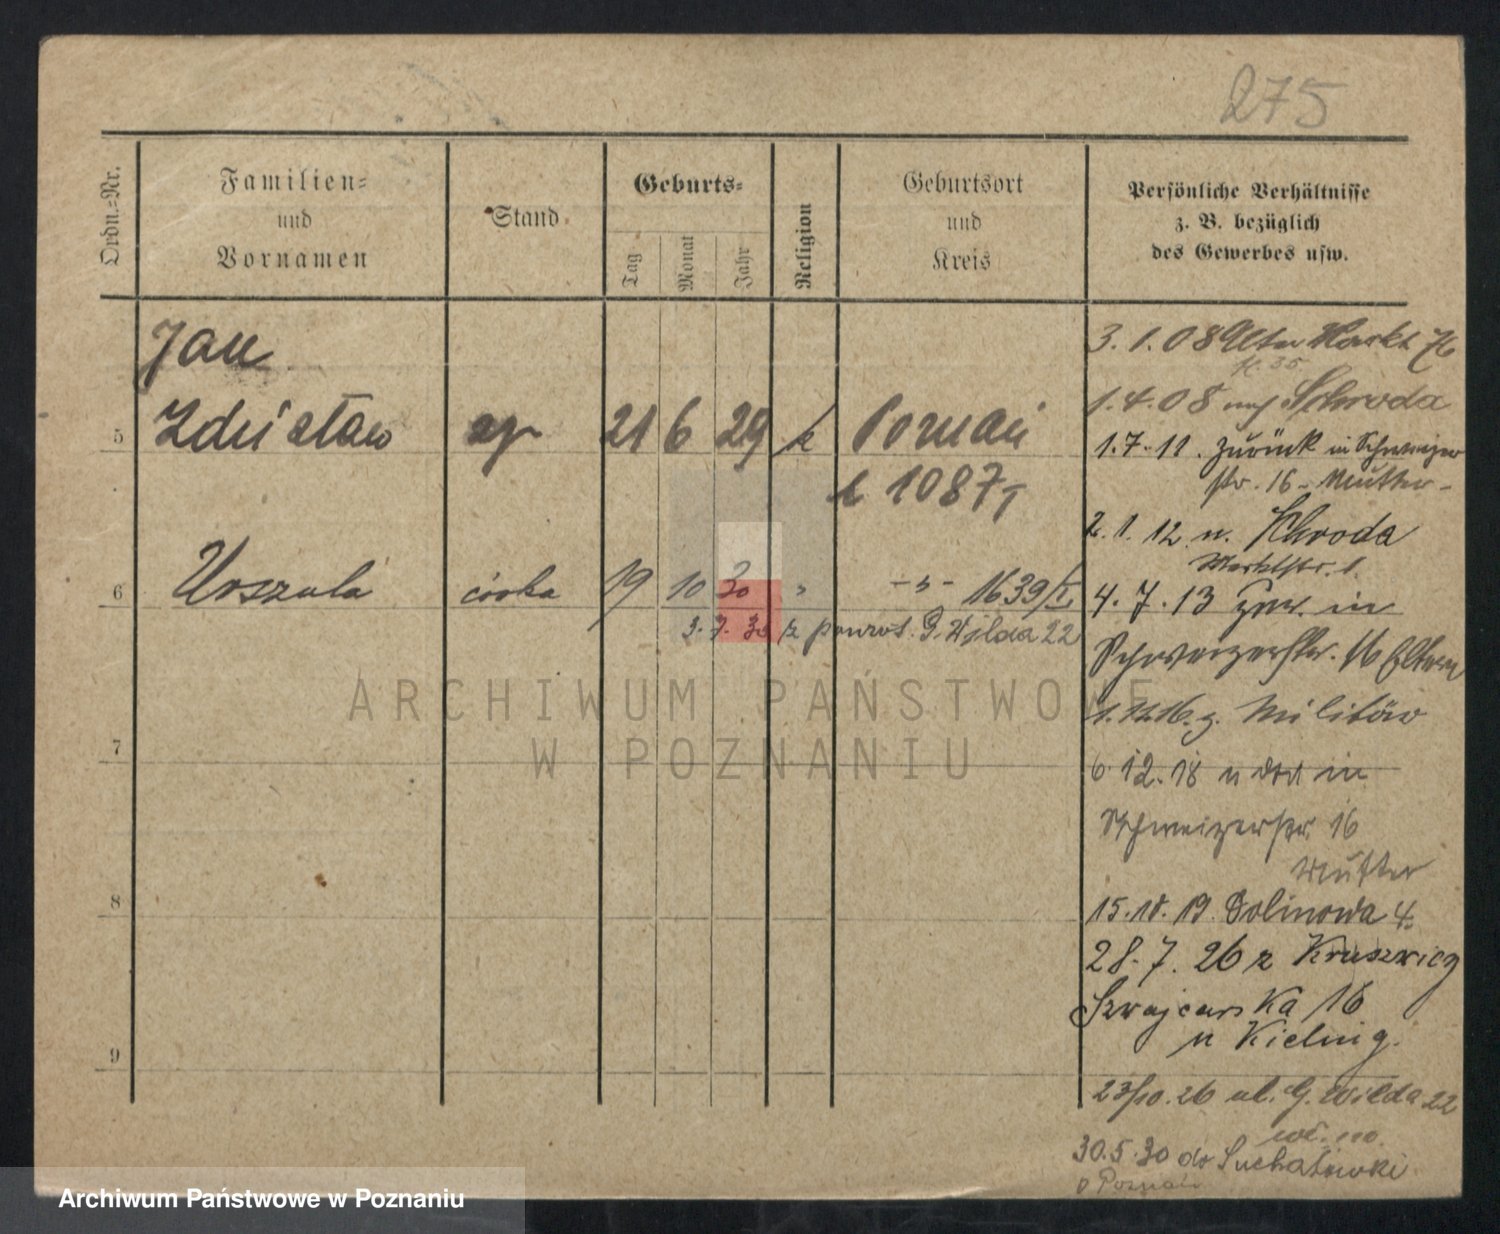 275
Ordn.=Nr.
Familien=
und
Vornamen
Stand
Geburts=
Tag
Monat
Jahr
Religion
Geburtsort
und
Kreis
Persönliche Verhältnisse
z. B. bezüglich
des Gewerbes usw.
Jan
5 Zdzisław 21 6 29 k Poznań
1087
6 Urszula córka 19 10 30 " -"- 1639/I
3. 7. 30 z powrot. G. Wilda 22
7
8
9
3. 1. 08 Alter Markt 76
1. 4. 08 nach Schroda
1. 7. 11. zurück in Schweizer
str. 16 - Mutter -
2. 1. 12 n. Schroda
Marktstr. 1.
4. 7. 13 zur. in
Schweizerstr. 16 Eltern
z. Militär
6. 12. 18 in
Schweizerstr. 16
Mutter
15. 10. 19. Dolinowa 4.
28. 7. 26 z Kruszwicy
Szwajcarska 16
u
23/10. 26 ul. G. Wilda 22
30. 5. 30 do
p Poznań
ARCHIWUM PAŃSTWOWE
W POZNANIU
Archiwum Państwowe w Poznaniu